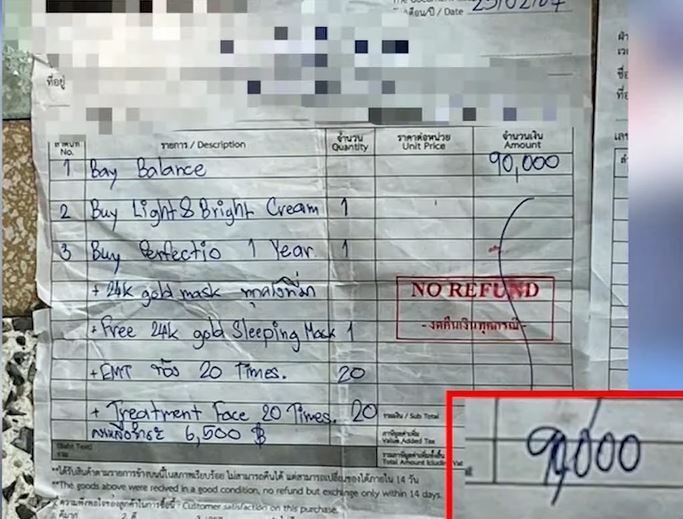 วันที่/เดือน/ปี / Date
ที่อยู่
ลำดับที่ No. รายการ / Description จำนวน Quantity ราคาต่อหน่วย Unit Price จำนวนเงิน Amount
1 Bay Balance 90,000
2 Buy Light & Bright Cream 1
3 Buy Perfectio 1 Year 1
+ 24k gold mask
NO REFUND
- งดคืนเงินทุกกรณี -
+ Free 24k gold Sleeping Mask 1
+ EMT 20 Times. 20
+ Treatment Face 20 Times. 20
รวมเงิน / Sub Total
6,500 ฿
ภาษีมูลค่าเพิ่ม
Value Added Tax
รวม
90,000
**ได้รับสินค้าตามรายการข้างบนนี้ในสภาพเรียบร้อย ไม่สามารถคืนได้ แต่สามารถเปลี่ยนของได้ภายใน 14 วัน
**The goods above were recived in a good condition, no refund but exchange only within 14 days.
ความพึงพอใจของลูกค้าในการซื้อนี้ : Customer satisfaction on this purchase.